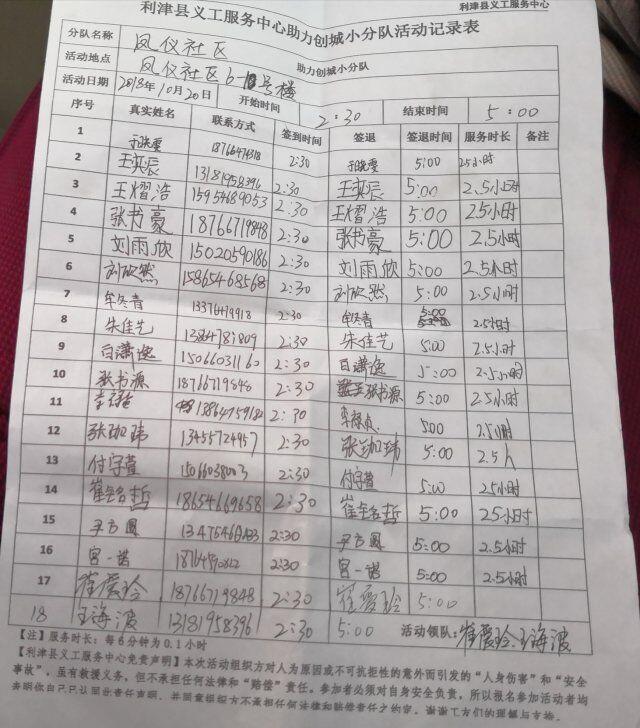 利津县义工服务中心
利津县义工服务中心助力创城小分队活动记录表
分队名称 凤仪社区 助力创城小分队
活动地点 凤仪社区6-10号楼
活动日期 2018年10月20日 开始时间 2:30 结束时间 5:00
序号 真实姓名 联系方式 签到时间 签退 签退时间 服务时长 备注
1 2:30 5:00 2.5小时
2 王奕辰 13181958396 2:30 王奕辰 5:00 2.5小时
3 王熠浩 15954689053 2:30 王熠浩 5:00 2.5小时
4 张书豪 18766719848 2:30 张书豪 5:00 2.5小时
5 刘雨欣 15020590186 2:30 刘雨欣 5:00 2.5小时
6 刘欣然 15865468568 2:30 刘欣然 5:00 2.5小时
7 牟冬青 2:30 牟冬青 5:00 2.5小时
8 朱佳艺 2:30 朱佳艺 5:00 2.5小时
9 白潇逸 15066031160 2:30 白潇逸 5:00 2.5小时
10 张书源 18766719848 2:30 张书源 5:00 2.5小时
11 2:30 5:00 2.5小时
12 张珈玮 13455724957 2:30 张珈玮 5:00 2.5
13 付宇萱 15066038003 2:30 付宇萱 5:00 2.5小时
14 18654669658 2:30 5:00 2.5小时
15 2:30 5:00 2.5小时
16 宫一诺 2:30 宫一诺 5:00 2.5小时
17 崔霞玲 18766719848 2:30 崔霞玲 5:00
18 王海波 13181958396 2:30 5:00 活动领队：崔霞玲、王海波
【注】服务时长：每6分钟为0.1小时
【利津县义工服务中心免责声明】本次活动组织方对人为原因或不可抗拒性的意外而引发的“人身伤害”和“安全
事故”，虽有救援义务，但不承担任何法律和“赔偿”责任。参加者必须对自身安全负责，所以报名参加活动者均
表明你自己已认同此责任声明，并同意组织方不承担任何法律和赔偿责任之约定。谢谢义工们的理解与支持。